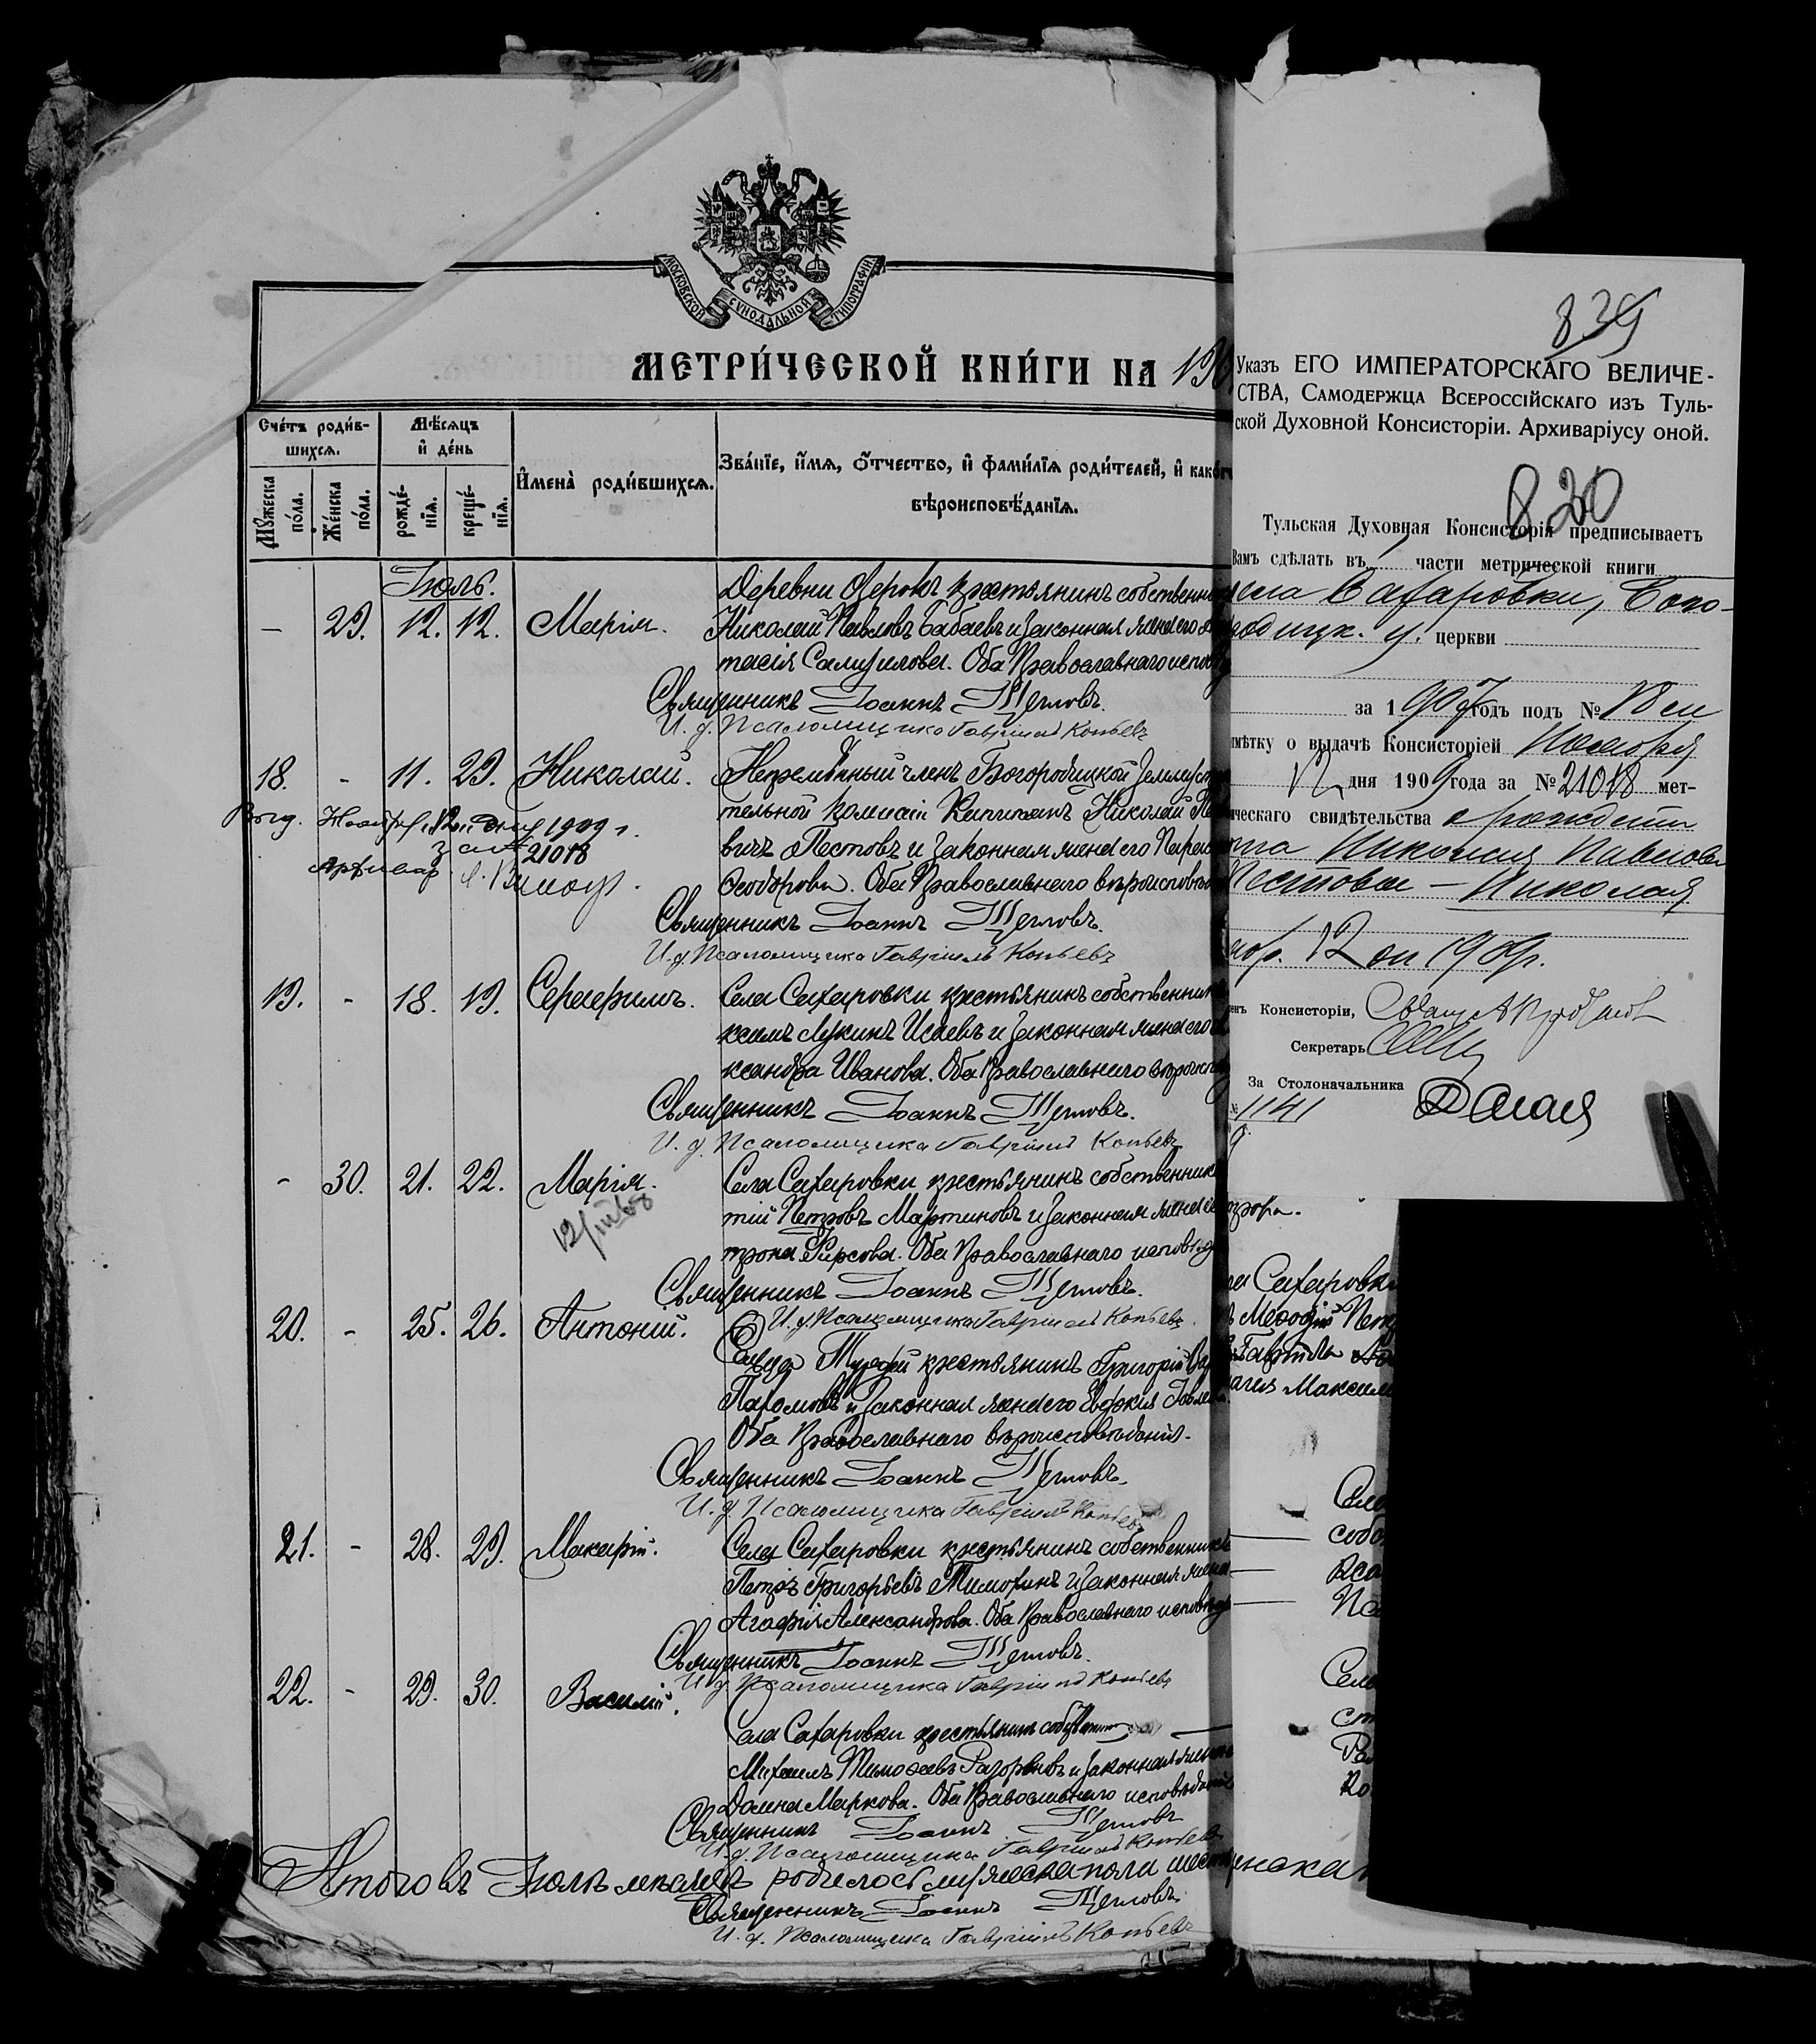 МОСКОВСКОЙ СУНОДАЛЬНОЙ ТИПОГРАФІИ
МЕТРИ́ЧЕСКОЙ КНИ́ГИ НА 190
Сче́тъ роди́вшихся.
Мѣ́сяцъ и де́нь
Мꙋ́жеска по́ла.
Же́нска по́ла.
рожде́нїя.
креще́нїя.
Имена̀ роди́вшихся.
Зва́нїе, и́мя, о́тчество, и фами́лїя роди́телей, и како́гѡ
вѣроисповѣ́данїя.
Іюль.
- 29. 12. 12. Марія.
Деревни крестьянинъ собственникъ
Николай Павловъ Бабаевъ и законная жена его
тасія Самуилова. Оба Православнаго испов
Священникъ Іоаннъ Щегловъ.
И. д. Псаломщика Гавріилъ Копьевъ
18. - 11. 29. Николай.
Непремѣнный членъ Богородицкой Землеустро
тельной комиссіи Капитанъ Николай Па
вичъ Пестовъ и законная жена его Парас
Ѳеодорова. Оба Православнаго вѣроисповѣд
Ноября 12 дня 1909 г.
за № 21018
Архивар.
Священникъ Іоаннъ Щегловъ.
И. д. Псаломщика Гавріилъ Копьевъ
19. - 18. 19. Серафимъ.
Села Сахаровки крестьянинъ собственник
ксимъ Лукинъ Исаевъ и законная жена его
ксандра Иванова. Оба Православнаго вѣроиспов
Священникъ Іоаннъ Щегловъ.
И. д. Псаломщика Гавріилъ Копьевъ
- 30. 21. 22. Марія.
Села Сахаровки крестьянинъ собственникъ
тій Петровъ Мартиновъ и законная жена е
трона Фирсова. Оба Православнаго исповѣд
Священникъ Іоаннъ Щегловъ.
И. д. Псаломщика Гавріилъ Копьевъ.
20. - 25. 26. Антоній.
крестьянинъ Григорій
Пахомовъ и законная жена его Евдокія
Оба Православнаго вѣроисповѣданія.
Священникъ Іоаннъ Щегловъ.
И. д. Псаломщика Гавріилъ Копьевъ
21. - 28. 29. Макарій.
Села Сахаровки крестьянинъ собственникъ
Петръ Григорьевъ Тимохинъ и законная жена
Агафія Александрова. Оба Православнаго исповѣд
Священникъ Іоаннъ Щегловъ.
И. д. Псаломщика Гавріилъ Копьевъ
22. - 29. 30. Василій.
Села Сахаровки крестьянинъ собствен
Михаилъ Тимоѳеевъ и законная жена
Домна Маркова. Оба Православнаго исповѣданія
Священникъ Іоаннъ Щегловъ
И. д. Псаломщика Гавріилъ Копьевъ
Итого въ Іюлѣ мѣсяцѣ родилось мужеска пола шест женска
Священникъ Іоаннъ Щегловъ.
И. д. Псаломщика Гавріилъ Копьевъ
839
Указъ ЕГО ИМПЕРАТОРСКАГО ВЕЛИЧЕ-
СТВА, Самодержца Всероссійскаго изъ Туль-
ской Духовной Консисторіи. Архиваріусу оной.
820
Тульская Духовная Консисторія предписываетъ
Вамъ сдѣлать въ 1 части метрической книги
села Сахаровки, Бого-
родицк. у. церкви
за 1907 годъ подъ № 18 
мѣтку о выдачѣ Консисторіей Ноября
12 дня 1909 года за № 21018 мет-
ическаго свидѣтельства о рожденіи
Николая Павлова
Пестова — Николая
нобр. 12 дн 1909 г.
енъ Консисторіи,
Секретарь
За Столоначальника
№ 1141
Сахаровки
Меѳодій Пет
Гавріилъ
Максим